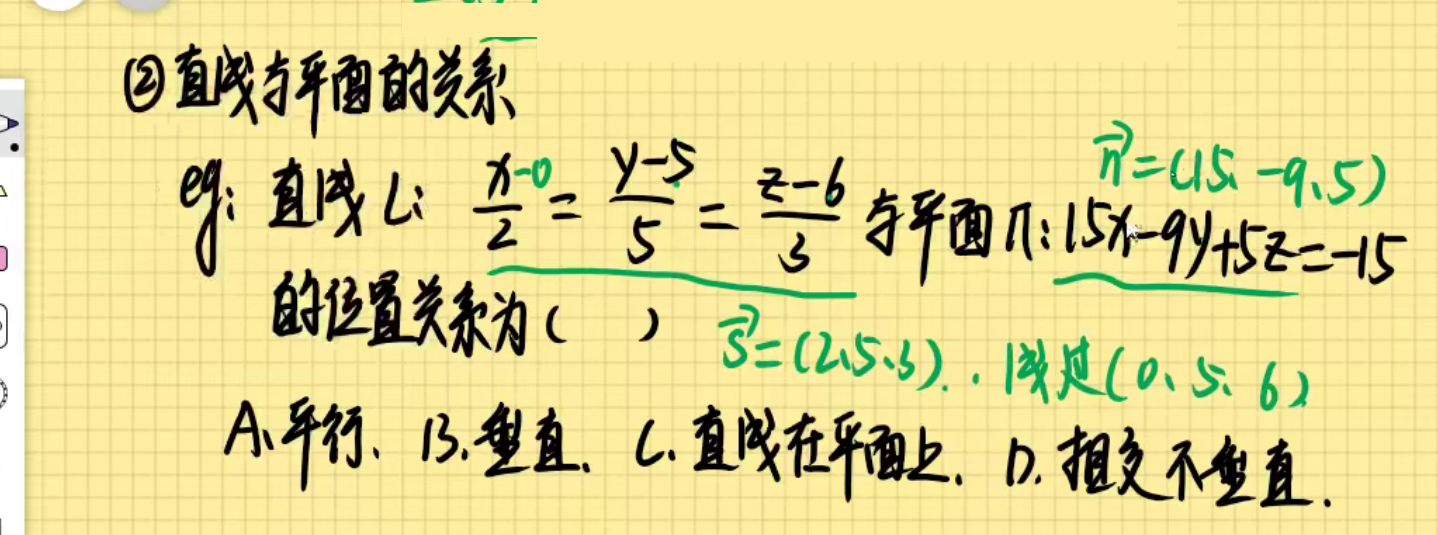 ②直线与平面的关系
n⃗=(15、-9、5)
eg: 直线L: (x-0)/2 = (y-5)/5 = (z-6)/3 与平面π: 15x-9y+5z=-15
的位置关系为( )
s⃗=(2、5、3). . 线过(0、5、6)
A、平行、 B、垂直、 C. 直线在平面上、 D. 相交不垂直.